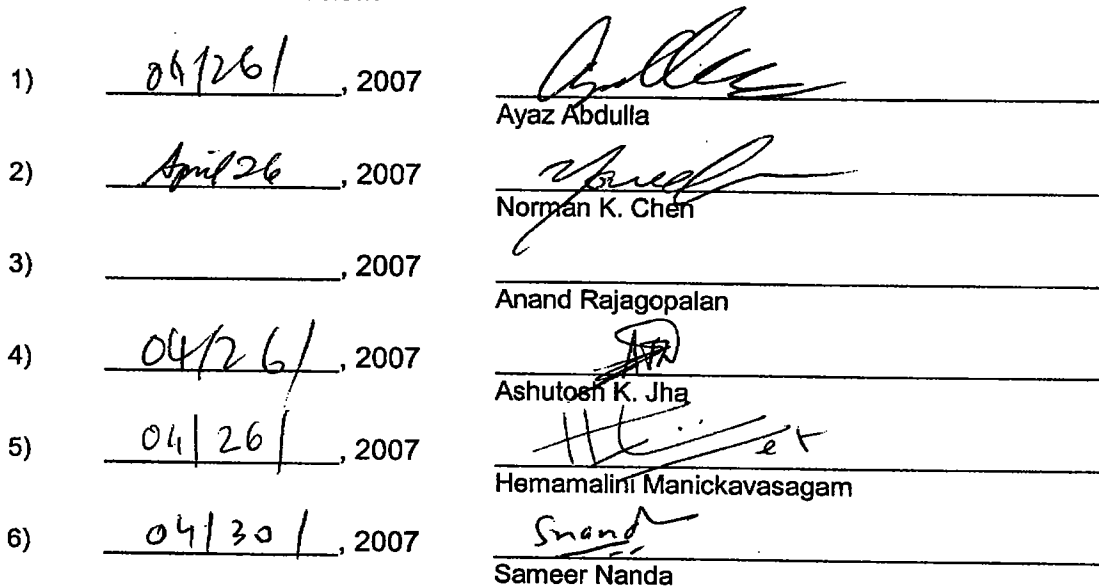 1) 04/26/, 2007
Ayaz Abdulla
2) April 26, 2007
Norman K. Chen
3) , 2007
Anand Rajagopalan
4) 04/26/, 2007
Ashutosh K. Jha
5) 04/26/, 2007
Hemamalini Manickavasagam
6) 04/30/, 2007
Snand
Sameer Nanda